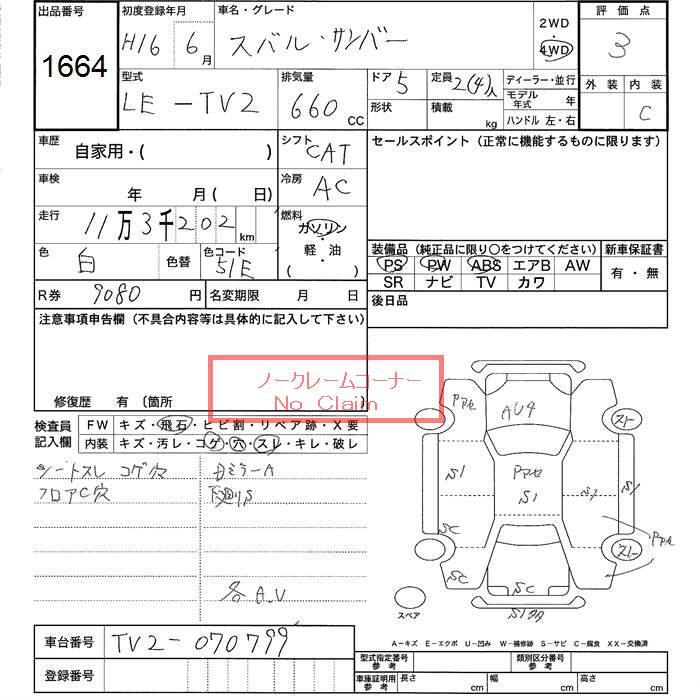 出品番号 初度登録年月 車名・グレード 2WD・4WD 評価点
1664 H16 6月 スバル・サンバー 3
型式 排気量 ドア 5 定員 2(4)人 ディーラー・並行 外装 内装
LE-TV2 660 CC 形状 積載 kg モデル年式 年 C
ハンドル 左・右
車歴 自家用・( ) シフト CAT セールスポイント (正常に機能するものに限ります)
車検 年 月( 日) 冷房 AC
走行 11万3千202km 燃料 ガソリン・軽・油・( )
色 白 色替 色コード 51E 装備品 (純正品に限り○をつけてください) 新車保証書
PS PW ABS エアB AW 有・無
SR ナビ TV カワ
R券 9080円 名変期限 月 日 後日品
注意事項申告欄 (不具合内容等は具体的に記入して下さい)
ノークレームコーナー
No Claim
修復歴 有 〔箇所 〕
検査員記入欄 FW キズ・飛石・ヒビ割・リペア跡・X要
内装 キズ・汚レ・コゲ・穴・スレ・キレ・破レ
シートスレ コゲ穴 ミラーA
フロアC穴 下廻りS
各A.U
AU4
S1 S1 S1 S1
SC SC SC
スペア
車台番号 TV2-070799
A-キズ E-エクボ U-凹み W-補修跡 S-サビ C-腐食 XX-交換済
登録番号 型式指定番号 参考 類別区分番号 参考
車庫証明用 参考 長さ cm 幅 cm 高さ cm